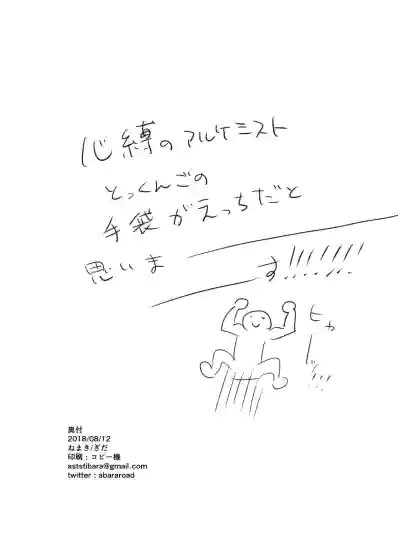 心縛のアルケミスト
とっくんごの
手袋がえっちだと
思いま
す!!!!!!!
ヒャ
奥付
2018/08/12
ねまき/ぎだ
印刷:コピー機
aststibara@gmail.com
twitter : abararoad